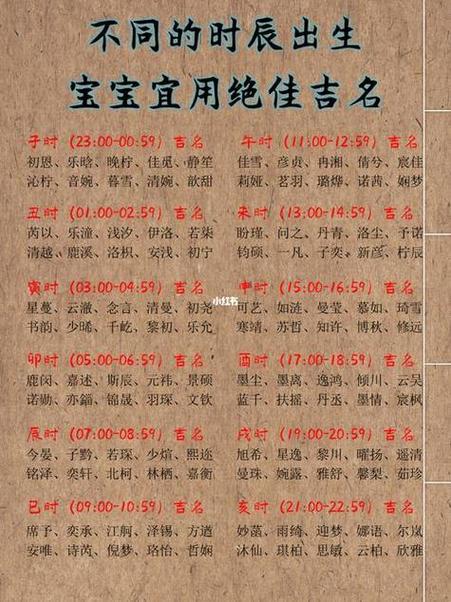 不同的时辰出生
宝宝宜用绝佳吉名
子时 (23:00-00:59) 吉名
初恩、乐晗、晚柠、佳觅、静笙
沁柠、音婉、暮雪、清婉、歆甜
丑时 (01:00-02:59) 吉名
芮以、乐潼、浅汐、伊洛、若柒
清越、鹿溪、洛枳、安浅、初宁
寅时 (03:00-04:59) 吉名
星蔓、云澈、念言、清曼、初尧
书韵、少晞、千屹、黎初、乐允
卯时 (05:00-06:59) 吉名
鹿闵、嘉述、斯辰、元祎、景硕
诺勋、亦錙、锦晟、羽琛、文钦
辰时 (07:00-08:59) 吉名
今晏、子黔、若琛、少煊、熙迩
铭泽、奕轩、北柯、林栖、嘉衡
巳时 (09:00-10:59) 吉名
席予、奕承、江舸、泽锡、方遒
安唯、诗芮、倪梦、珞怡、哲娴
午时 (11:00-12:59) 吉名
佳雪、彦贞、冉湘、倩兮、宸佳
莉娅、茗羽、璐烨、诺茜、娴梦
未时 (13:00-14:59) 吉名
盼瑾、问之、丹青、洛尘、予诺
钧硕、一凡、子奕、新彦、柠辰
申时 (15:00-16:59) 吉名
可艺、如涟、曼莹、慕如、琦雪
寒靖、苏哲、知许、博秋、修远
酉时 (17:00-18:59) 吉名
墨尘、墨离、逸鸿、倾川、云吴
蓝千、扶摇、丹丞、墨情、宸枫
戌时 (19:00-20:59) 吉名
旭希、星逸、黎川、曜扬、遥清
曼珠、婉露、雅舒、馨梨、茹珍
亥时 (21:00-22:59) 吉名
妙菡、雨绮、迎梦、娜语、尔岚
沐仙、琪柏、思敏、云柏、欣雅
小红书